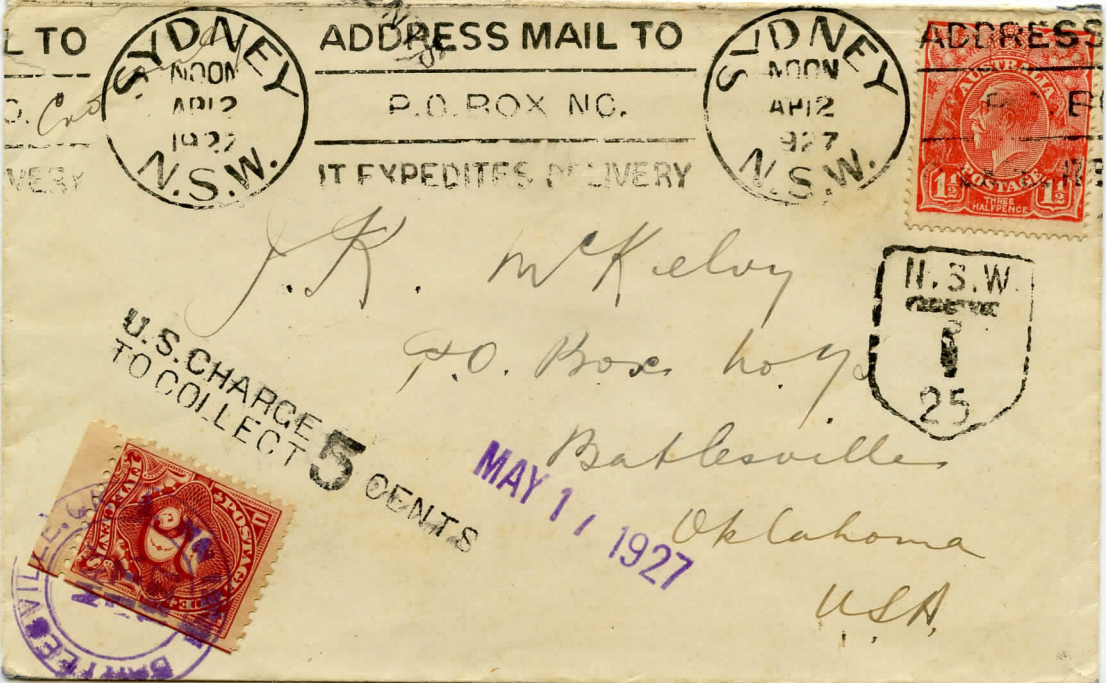 L TO
SYDNEY
NOON
AP 12
1927
N.S.W.
ADDRESS MAIL TO
P.O. BOX NO.
IT EXPEDITES DELIVERY
SYDNEY
NOON
AP 12
927
N.S.W.
ADDRESS
AUSTRALIA
1½ POSTAGE 1½
THREE
HALFPENCE
IVERY
J. K. McKelvy
P.O. Box No.
Batlesville
Oklahoma
USA.
N.S.W.
T
25
U.S. CHARGE
TO COLLECT 5 CENTS
MAY 1 1927
POSTAGE DUE
FIVE CENTS
5